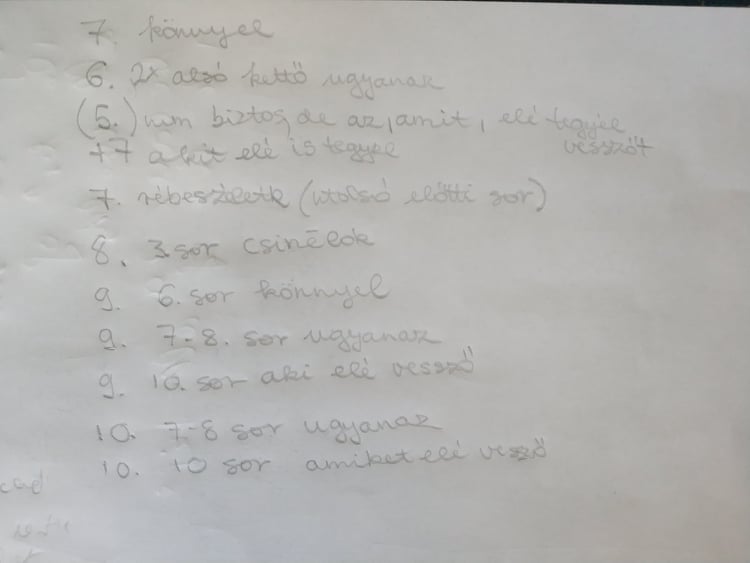 7. könnyel
6. 2x alsó kettő ugyanaz
(5.) nem biztos, de az, amit, elé tegyél vesszőt
+7 akit elé is tegyél
7. rébeszéletk (utolsó előtti sor)
8. 3. sor csinélok
9. 6. sor könnyel
9. 7-8. sor ugyanaz
9. 10. sor aki elé vessző
10. 7-8 sor ugyanaz
10. 10 sor amiket elé vesző